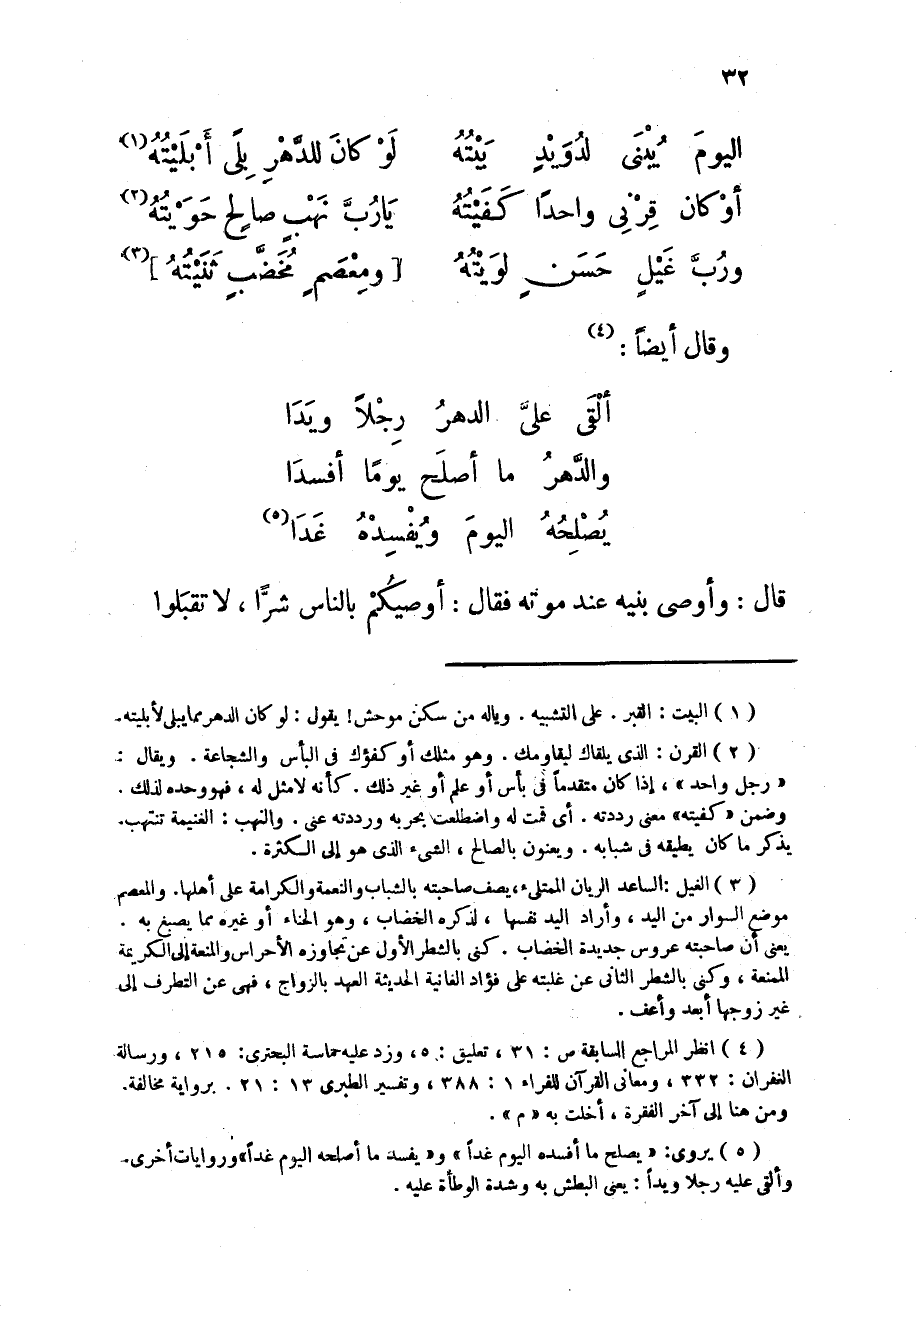 ٣٢
اليومَ يُبْنَى لدُوَيْدٍ بَيْتُهُ لَوْ كانَ للدَّهْرِ بِلًى أَبْلَيْتُهُ(١)
أوْ كان قِرْنِى واحدًا كَفَيْتُهُ يَارُبَّ نَهْبٍ صالِحٍ حَوَيْتُهُ(٢)
ورُبَّ غَيْلٍ حَسَنٍ لوَيْتُهُ [ ومِعْصَمٍ مُخَضَّبٍ ثَنَيْتُهُ ](٣)
وقال أيضاً :(٤)
ألْقَى علىَّ الدهرُ رِجْلاً ويَدَا
والدَّهرُ ما أصلَح يومًا أفسدَا
يُصْلِحُهُ اليومَ ويُفْسِدْهُ غَدَا(٥)
قال : وأوصى بنيه عند موته فقال : أوصيكُمْ بالناس شرًّا ، لا تقبَلوا
( ١ ) البيت : القبر . على التشبيه . وياله من سكن موحش! يقول : لو كان الدهر مما يبلى لأبليته .
( ٢ ) القرن : الذى يلقاك ليقاومك . وهو مثلك أو كفؤك فى البأس والشجاعة . ويقال :
« رجل واحد » ، إذا كان متقدماً فى بأس أو علم أو غير ذلك . كأنه لامثل له ، فهو وحده لذلك .
وضمن « كفيته» معنى رددته . أى قمت له واضطلعت بحربه ورددته عنى . والنهب : الغنيمة تنتهب .
يذكر ما كان يطيقه فى شبابه . ويعنون بالصالح ، الشىء الذى هو إلى الكثرة .
( ٣ ) الغيل :الساعد الريان الممتلىء، يصف صاحبته بالشباب والنعمة والكرامة على أهلها. والمعصم
موضع السوار من اليد ، وأراد اليد نفسها ، لذكره الخضاب ، وهو الحناء أو غيره مما يصبغ به .
يعنى أن صاحبته عروس جديدة الخضاب . كنى بالشطر الأول عن تجاوزه الأحراس والمنعة إلى الكريمة
الممنعة ، وكنى بالشطر الثانى عن غلبته على فؤاد الغانية الحديثة العهد بالزواج ، فهى عن التطرف إلى
غير زوجها أبعد وأعف .
( ٤ ) انظر المراجع السابقة ص : ٣١ ، تعليق : ٥، وزد عليه حماسة البحترى: ٢١٥ ، ورسالة
الغفران : ٣٣٢ ، ومعانى القرآن للفراء ١ : ٣٨٨ ، وتفسير الطبرى ١٣ : ٢١ . برواية مخالفة.
ومن هنا إلى آخر الفقرة ، أخلت به « م » .
( ٥ ) يروى: « يصلح ما أفسده اليوم غداً » و« يفسد ما أصلحه اليوم غداً»وروايات أخرى .
وألقى عليه رجلا ويداً : يعنى البطش به وشدة الوطأة عليه .